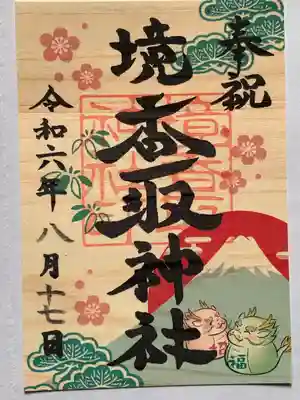 奉祝
境香取神社
令和六年八月十七日
福